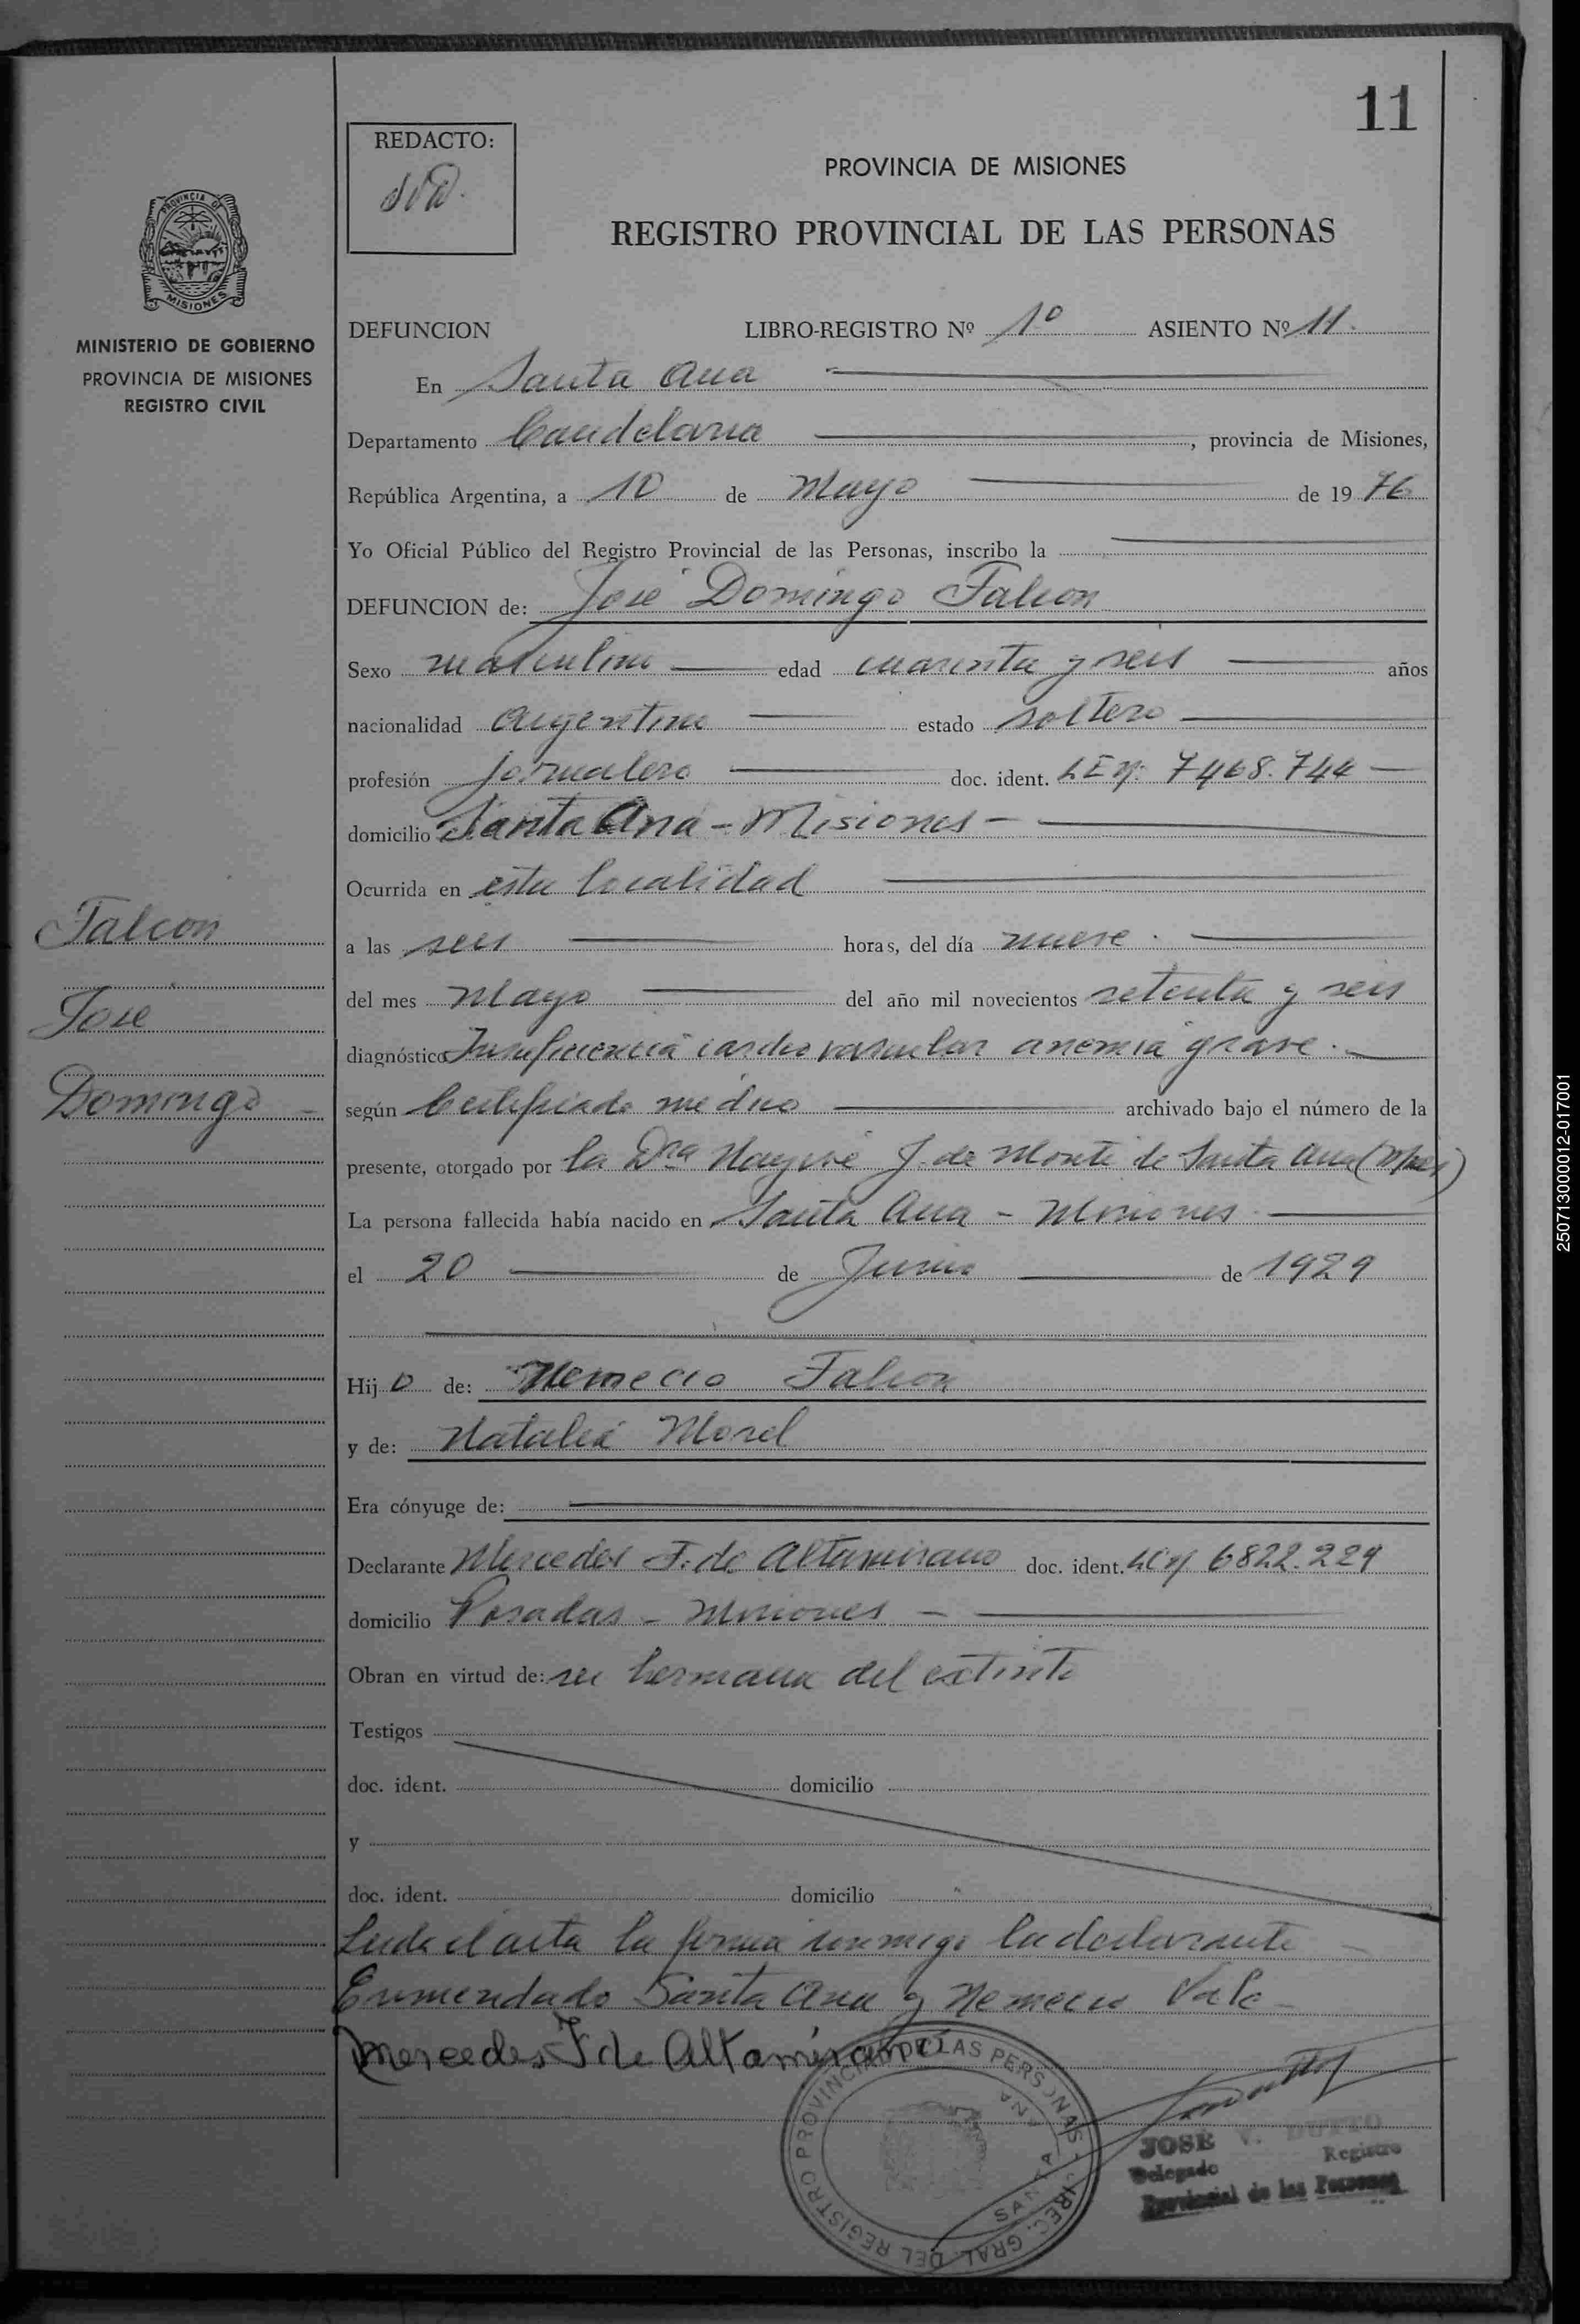 11
REDACTO:
PROVINCIA DE MISIONES
REGISTRO PROVINCIAL DE LAS PERSONAS
PROVINCIA DE
MISIONES
MINISTERIO DE GOBIERNO
PROVINCIA DE MISIONES
REGISTRO CIVIL
DEFUNCION LIBRO-REGISTRO Nº 1º ASIENTO Nº 11.
En Santa Ana
Departamento Candelaria, provincia de Misiones,
República Argentina, a 10 de Mayo de 1976
Yo Oficial Público del Registro Provincial de las Personas, inscribo la
DEFUNCION de: José Domingo Falcon
Sexo masculino edad cuarenta y seis años
nacionalidad Argentina estado soltero
profesión Jornalero doc. ident. LE Nº 7468.744
domicilio Santa Ana - Misiones -
Ocurrida en esta localidad
a las seis horas, del día nueve.
del mes Mayo del año mil novecientos setenta y seis
diagnóstico Insuficiencia cardio vascular anemia grave.
según Certificado médico archivado bajo el número de la
presente, otorgado por la Dra J. de Monte de Santa Ana (Mnes)
La persona fallecida había nacido en Santa Ana - Misiones
el 20 de Junio de 1929
Hijo de: Nemecio Falcon
y de: Natalia Morel
Era cónyuge de:
Declarante Mercedes F. de Altamirano doc. ident. LC Nº 6822.229
domicilio Posadas - Misiones -
Obran en virtud de: ser hermana del extinto
Testigos
doc. ident. domicilio
y
doc. ident. domicilio
Leida el acta la firma conmigo la declarante
Enmendado Santa Ana y Nemecio Vale
Mercedes F de Altamirano
Falcon
Jose
Domingo
DIREC. GRAL. DEL REGISTRO PROVINCIAL DE LAS PERSONAS
SANTA ANA
JOSE V. DUTTO
Delegado Registro
Provincial de las Personas
2507130000012-017001